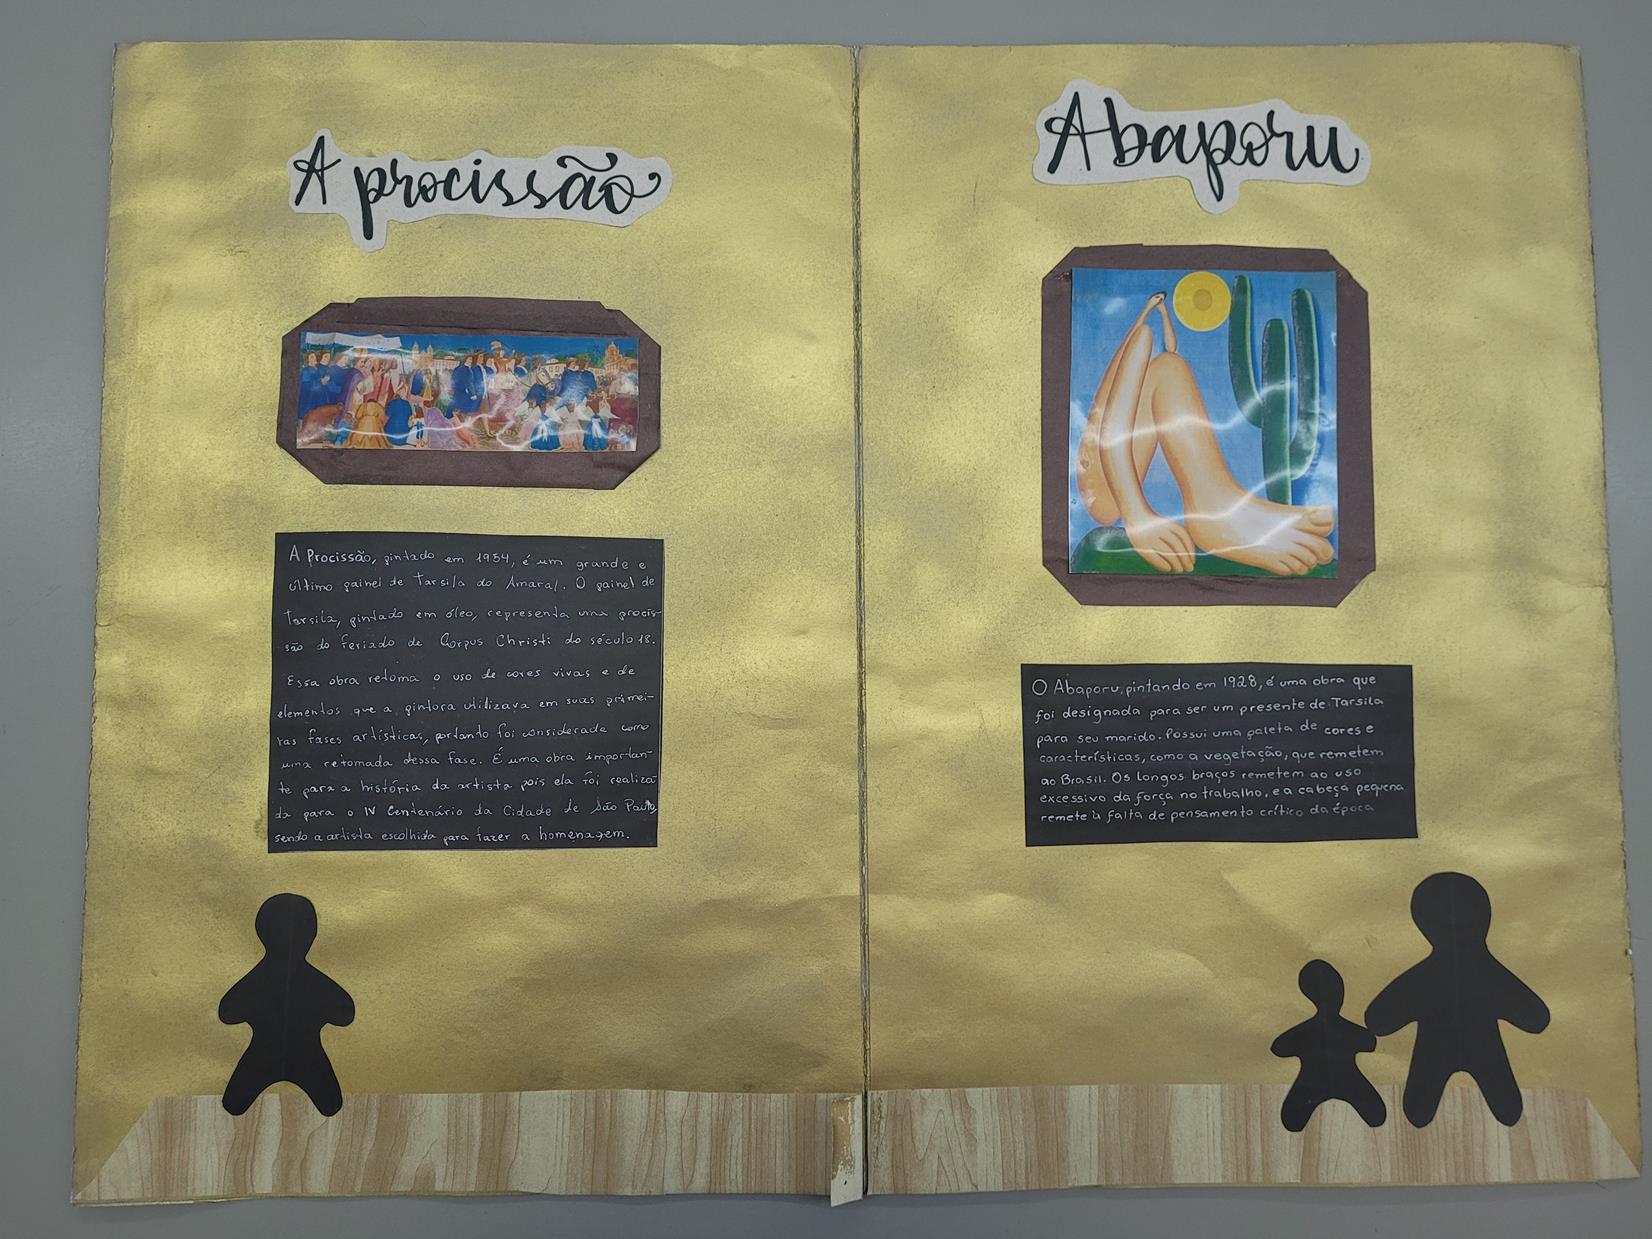 A procissão
A Procissão, pintado em 1954, é um grande e
último painel de Tarsila do Amaral. O painel de
Tarsila, pintado em óleo, representa uma procis-
são do feriado de Corpus Christi do século 18.
Essa obra retoma o uso de cores vivas e de
elementos que a pintora utilizava em suas primei-
ras fases artísticas, portanto foi considerada como
uma retomada dessa fase. É uma obra importan-
te para a história da artista pois ela foi realiza
da para o IV Centenário da Cidade de São Paulo,
sendo a artista escolhida para fazer a homenagem.
Abaporu
O Abaporu, pintando em 1928, é uma obra que
foi designada para ser um presente de Tarsila
para seu marido. Possui uma paleta de cores e
características, como a vegetação, que remetem
ao Brasil. Os longos braços remetem ao uso
excessivo da força no trabalho, e a cabeça pequena
remete à falta de pensamento crítico da época